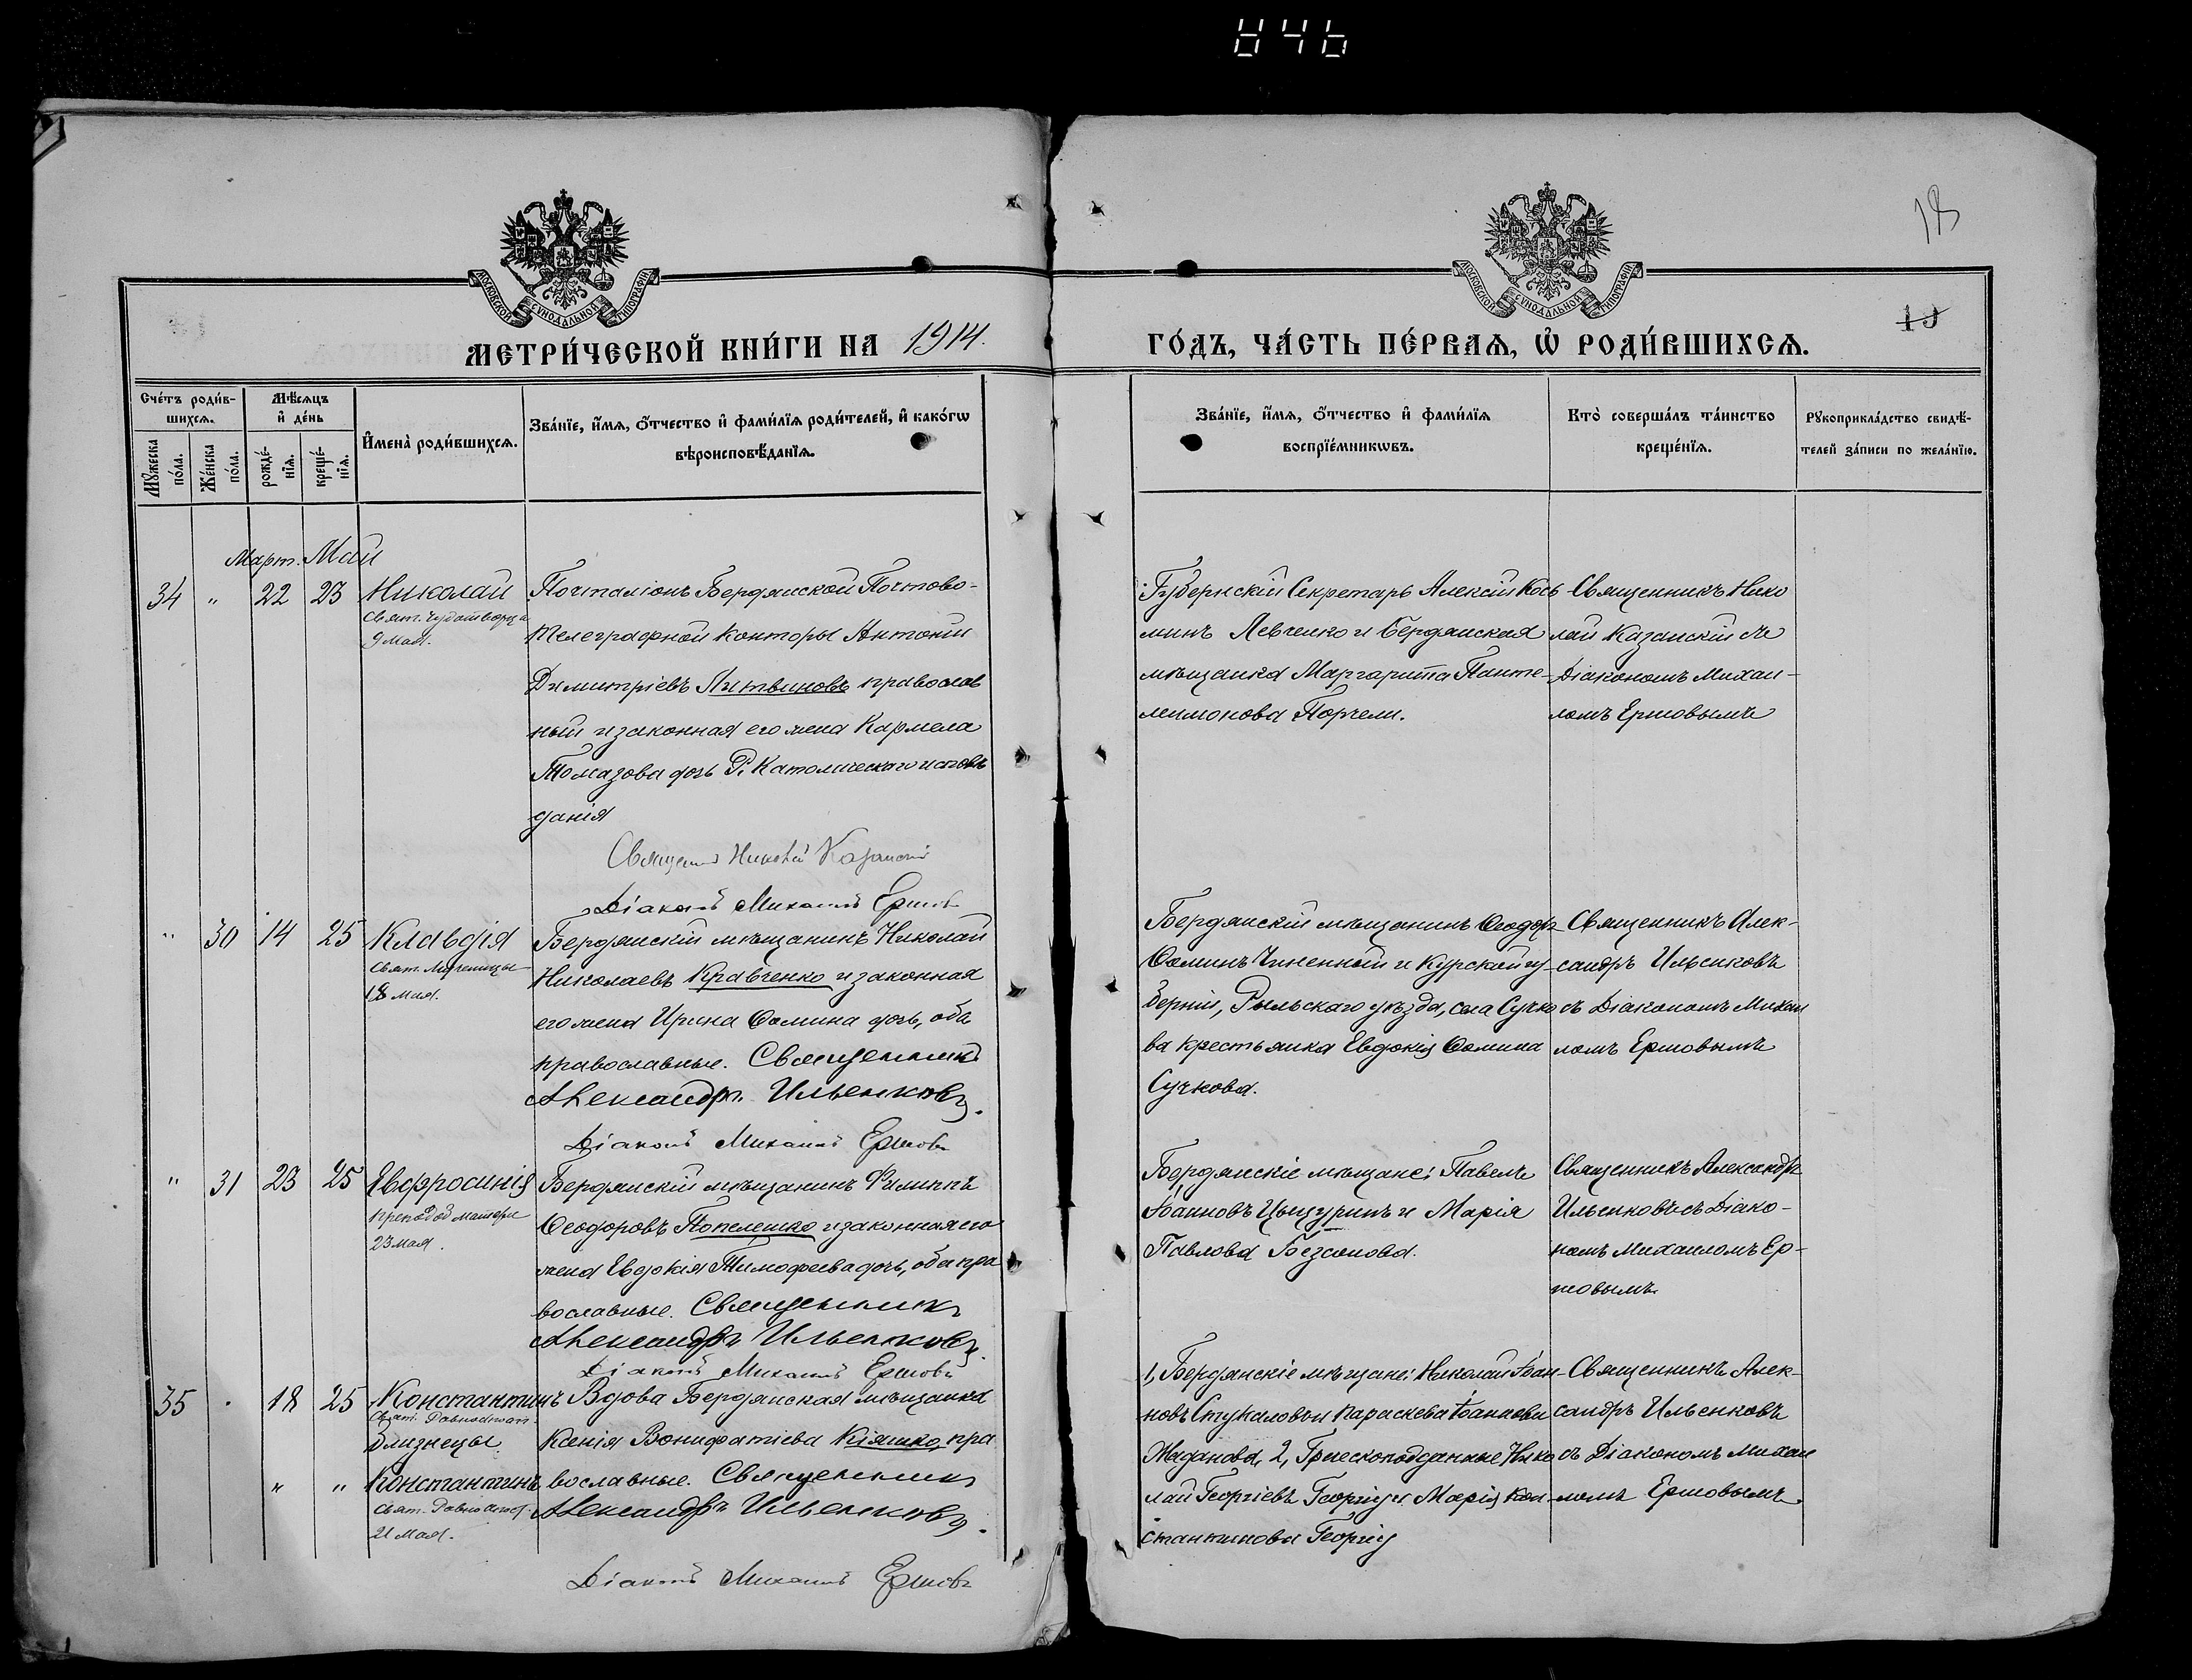 846
18
МОСКОВСКОЙ СѴНОДАЛЬНОЙ ТИПОГРАФІИ
МОСКОВСКОЙ СѴНОДАЛЬНОЙ ТИПОГРАФІИ
МЕТРИ́ЧЕСКОЙ КНИ́ГИ НА 1914.
ГО́ДЪ, ЧА́СТЬ ПЕ́РВАѦ, Ѡ҆ РОДИ́ВШИХСѦ.
Сче́тъ роди́в-
шихсѧ.
Мꙋ́жеска по́ла.
Же́нска по́ла.
Мѣ́сѧцъ
и҆ де́нь
рожде́-
нїѧ.
креще́-
нїѧ.
И҆мена̀ роди́вшихсѧ.
Зва́нїе, и҆́мѧ, ѻ҆́тчество и҆ фами́лїѧ роди́телей, и҆ како́гѡ
вѣроисповѣ́данїѧ.
Зва́нїе, и҆́мѧ, ѻ҆́тчество и҆ фами́лїѧ
воспрїе́мникѡвъ.
Кто̀ соверша́лъ та́инство
креще́нїѧ.
Рꙋкоприкла́дство свидѣ́-
телей за́писи по жела́нїю.
Март. Май
34 " 22 23 Николай
Свят. Чудотворца
9 Мая.
Почталіонъ Бердянской Почтово-
Телеграфной Конторы Антоній
Димитріевъ Литвиновъ православ
ный и законная его жена Кармела
Томазова дочь Р. Католическаго исповѣ
данія
Священ Николай Казанскій
Діаконъ Михаилъ Ершовъ
Губернскій Секретарь Алексій Кось
минъ Левченко и Бердянская
мѣщанка Маргарита Панте-
леимонова Порчели.
Священникъ Нико
лай Казанскій съ
Діакономъ Михаи-
ломъ Ершовымъ
" 30 14 25 Клавдія
Свят. Мученицы
18 Мая.
Бердянскій мѣщанинъ Николай
Николаевъ Кравченко и законная
его жена Ирина Ѳомина дочь, оба
православные. Священникъ
Александръ Ильенковъ.
Діаконъ Михаилъ Ершовъ
Бердянскій мѣщанинъ Ѳеодоръ
Ѳоминъ Чиненный и Курской гу-
берніи, Рыльскаго уѣзда, села Сучко
ва крестьянка Евдокія Ѳомина
Сучкова.
Священникъ Алек-
сандръ Ильенковъ
съ Діакономъ Михаи
ломъ Ершовымъ
" 31 23 25 Евфросинія
препод матери
23 мая.
Бердянскій мѣщанинъ Филиппъ
Ѳеодоровъ Попелешко и законная его
жена Евдокія Тимофеева дочь, оба пра
вославные. Священникъ
Александръ Ильенковъ.
Діаконъ Михаилъ Ершовъ
Бердянскіе мѣщане: Павелъ
Іоанновъ Цыцуринъ и Марія
Павлова Безсонова.
Священникъ Александръ
Ильенковъ съ Діако-
номъ Михаиломъ Ер-
шовымъ
35 " 18 25 Константинъ
Свят. Равноапост.
Близнецы.
" " Константинъ
Свят. Равноапост.
21 Мая.
Вдова Бердянская мѣщанка
Ксенія Вонифатіева Кіяшко, пра
вославные. Священникъ
Александръ Ильенковъ.
Діаконъ Михаилъ Ершовъ
1, Бердянскіе мѣщане: Николай Іоан-
новъ Стукаловъ и Параскева Іоаннова
Жаданова, 2, Греческоподданные Нико
лай Георгіевъ Георгіу и Марія Кон-
стантинова Георгіу
Священникъ Алек-
сандръ Ильенковъ
съ Діакономъ Михаи
ломъ Ершовымъ